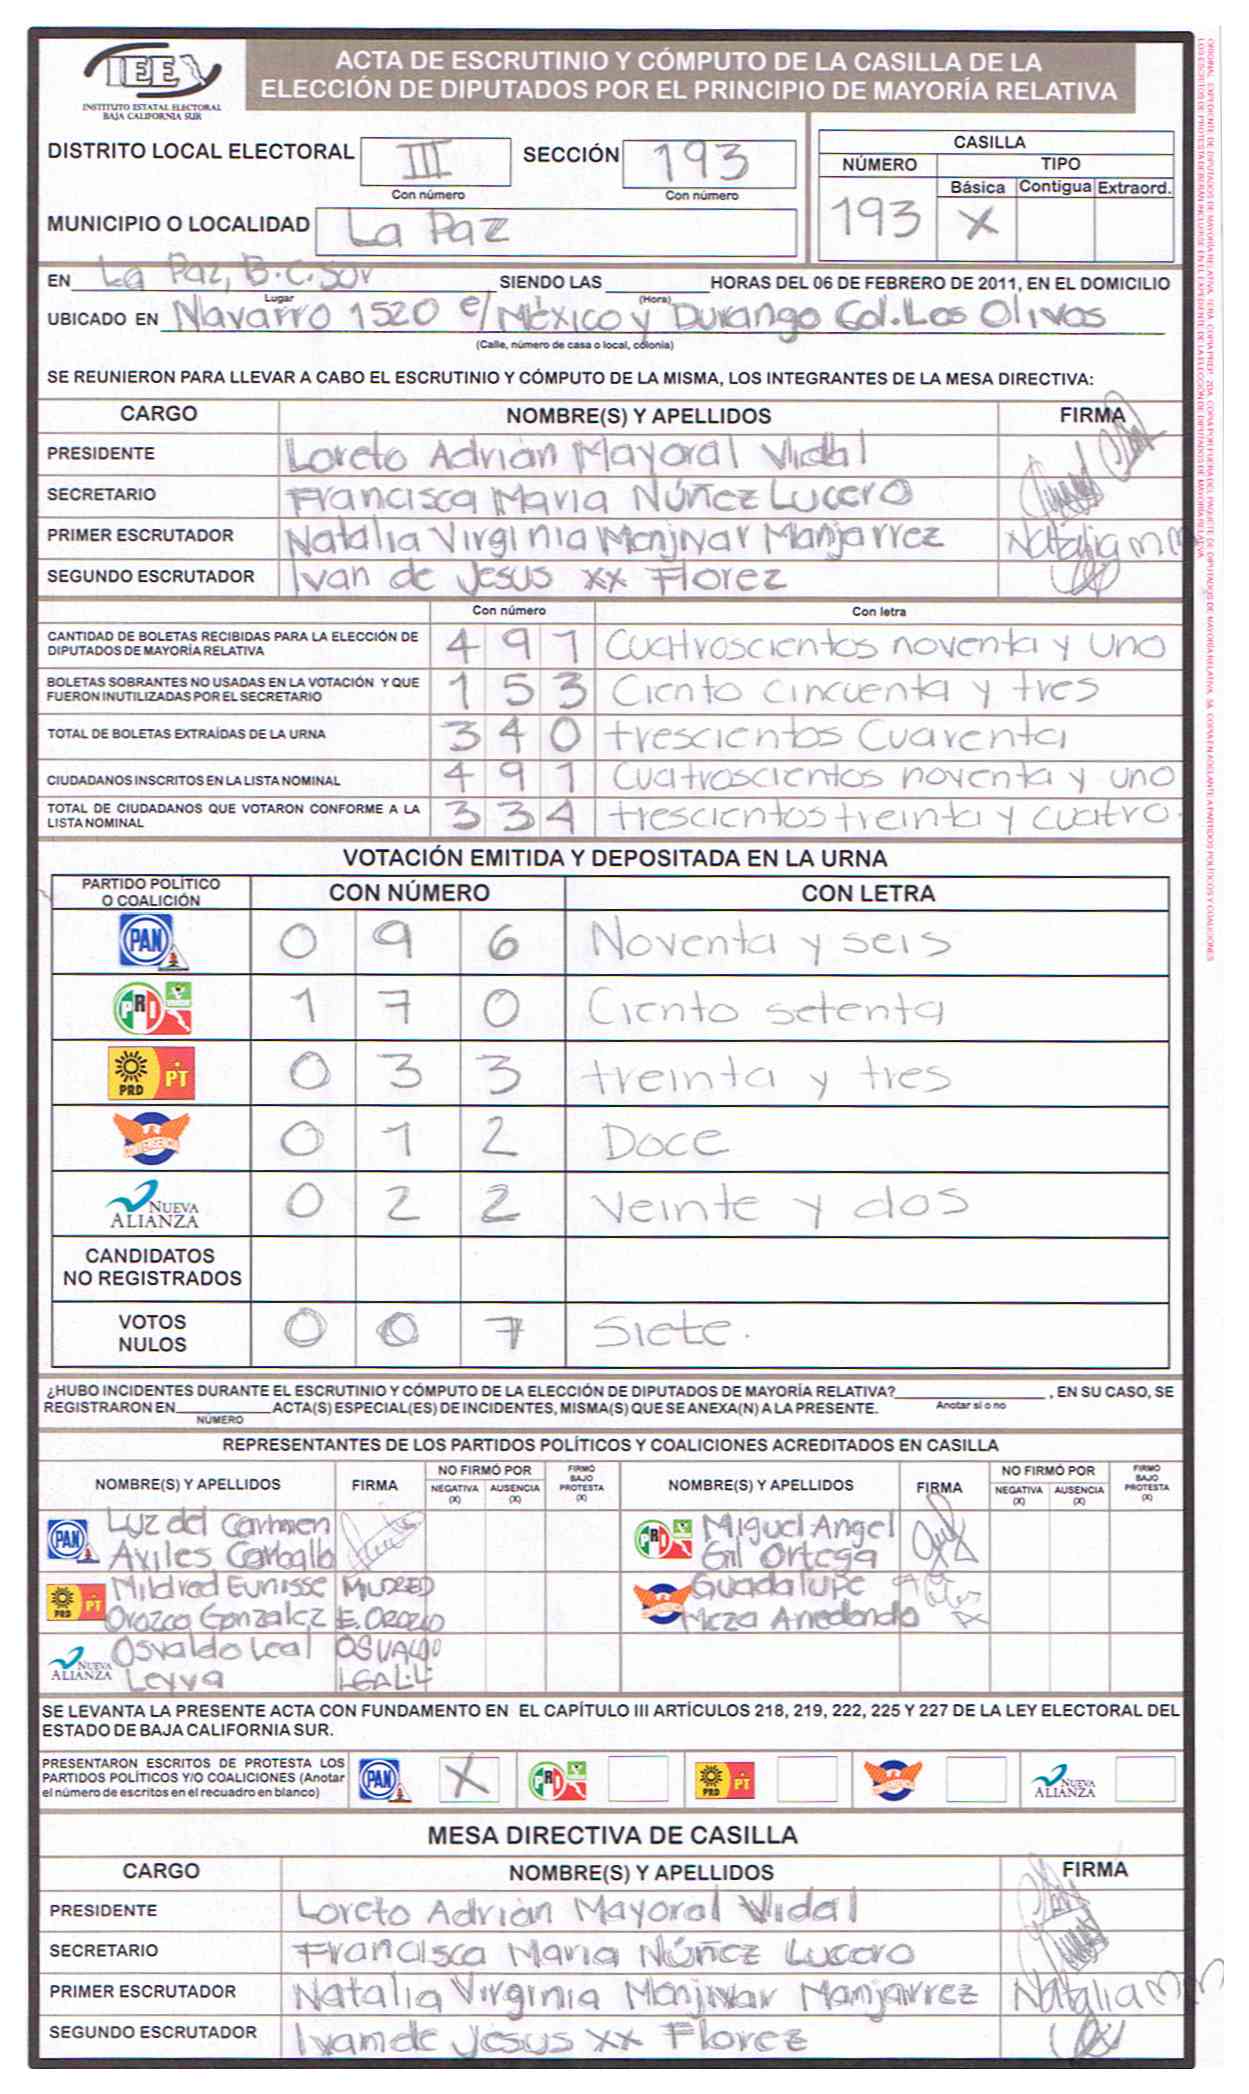 IEE
INSTITUTO ESTATAL ELECTORAL
BAJA CALIFORNIA SUR
ACTA DE ESCRUTINIO Y CÓMPUTO DE LA CASILLA DE LA
ELECCIÓN DE DIPUTADOS POR EL PRINCIPIO DE MAYORÍA RELATIVA
DISTRITO LOCAL ELECTORAL III SECCIÓN 193
Con número Con número
MUNICIPIO O LOCALIDAD La Paz
CASILLA
NÚMERO TIPO
Básica Contigua Extraord.
193 X
EN La Paz, B.C.Sur SIENDO LAS HORAS DEL 06 DE FEBRERO DE 2011, EN EL DOMICILIO
Lugar (Hora)
UBICADO EN Navarro 1520 e/ México y Durango Col. Los Olivos
(Calle, número de casa o local, colonia)
SE REUNIERON PARA LLEVAR A CABO EL ESCRUTINIO Y CÓMPUTO DE LA MISMA, LOS INTEGRANTES DE LA MESA DIRECTIVA:
CARGO NOMBRE(S) Y APELLIDOS FIRMA
PRESIDENTE Loreto Adrián Mayoral Vidal
SECRETARIO Francisca Maria Núñez Lucero
PRIMER ESCRUTADOR Natalia Virginia Monjivar Manjarrez Natalia M M
SEGUNDO ESCRUTADOR Ivan de Jesus xx Florez
Con número Con letra
CANTIDAD DE BOLETAS RECIBIDAS PARA LA ELECCIÓN DE
DIPUTADOS DE MAYORÍA RELATIVA 4 9 1 Cuatroscientos noventa y uno
BOLETAS SOBRANTES NO USADAS EN LA VOTACIÓN Y QUE
FUERON INUTILIZADAS POR EL SECRETARIO 1 5 3 Ciento cincuenta y tres
TOTAL DE BOLETAS EXTRAÍDAS DE LA URNA 3 4 0 trescientos Cuarenta
CIUDADANOS INSCRITOS EN LA LISTA NOMINAL 4 9 1 Cuatroscientos noventa y uno
TOTAL DE CIUDADANOS QUE VOTARON CONFORME A LA
LISTA NOMINAL 3 3 4 trescientos treinta y cuatro.
VOTACIÓN EMITIDA Y DEPOSITADA EN LA URNA
PARTIDO POLÍTICO
O COALICIÓN CON NÚMERO CON LETRA
PAN 0 9 6 Noventa y seis
PRI 1 7 0 Ciento setenta
PRD PT 0 3 3 treinta y tres
CONVERGENCIA 0 1 2 Doce
NUEVA
ALIANZA 0 2 2 Veinte y dos
CANDIDATOS
NO REGISTRADOS
VOTOS
NULOS 0 0 7 Siete.
¿HUBO INCIDENTES DURANTE EL ESCRUTINIO Y CÓMPUTO DE LA ELECCIÓN DE DIPUTADOS DE MAYORÍA RELATIVA? , EN SU CASO, SE
Anotar si o no
REGISTRARON EN ACTA(S) ESPECIAL(ES) DE INCIDENTES, MISMA(S) QUE SE ANEXA(N) A LA PRESENTE.
NÚMERO
REPRESENTANTES DE LOS PARTIDOS POLÍTICOS Y COALICIONES ACREDITADOS EN CASILLA
NOMBRE(S) Y APELLIDOS FIRMA NO FIRMÓ POR NEGATIVA (X) AUSENCIA (X) FIRMÓ BAJO PROTESTA (X) NOMBRE(S) Y APELLIDOS FIRMA NO FIRMÓ POR NEGATIVA (X) AUSENCIA (X) FIRMÓ BAJO PROTESTA (X)
PAN Luz del Carmen
Aviles Carballo
PRI Miguel Angel
Gil Ortega
PRD PT Mildred Eunisse MILDRED
Orozco Gonzalez E. OROZCO
Guadalupe
Meza Arredondo
NUEVA ALIANZA Osvaldo Leal OSVALDO
Leyva LEAL.L
SE LEVANTA LA PRESENTE ACTA CON FUNDAMENTO EN EL CAPÍTULO III ARTÍCULOS 218, 219, 222, 225 Y 227 DE LA LEY ELECTORAL DEL
ESTADO DE BAJA CALIFORNIA SUR.
PRESENTARON ESCRITOS DE PROTESTA LOS
PARTIDOS POLÍTICOS Y/O COALICIONES (Anotar
el número de escritos en el recuadro en blanco)
PAN X PRI PRD PT NUEVA ALIANZA
MESA DIRECTIVA DE CASILLA
CARGO NOMBRE(S) Y APELLIDOS FIRMA
PRESIDENTE Loreto Adrián Mayoral Vidal
SECRETARIO Francisca Maria Núñez Lucero
PRIMER ESCRUTADOR Natalia Virginia Monjivar Manjarrez Natalia M M
SEGUNDO ESCRUTADOR Ivan de Jesus xx Florez